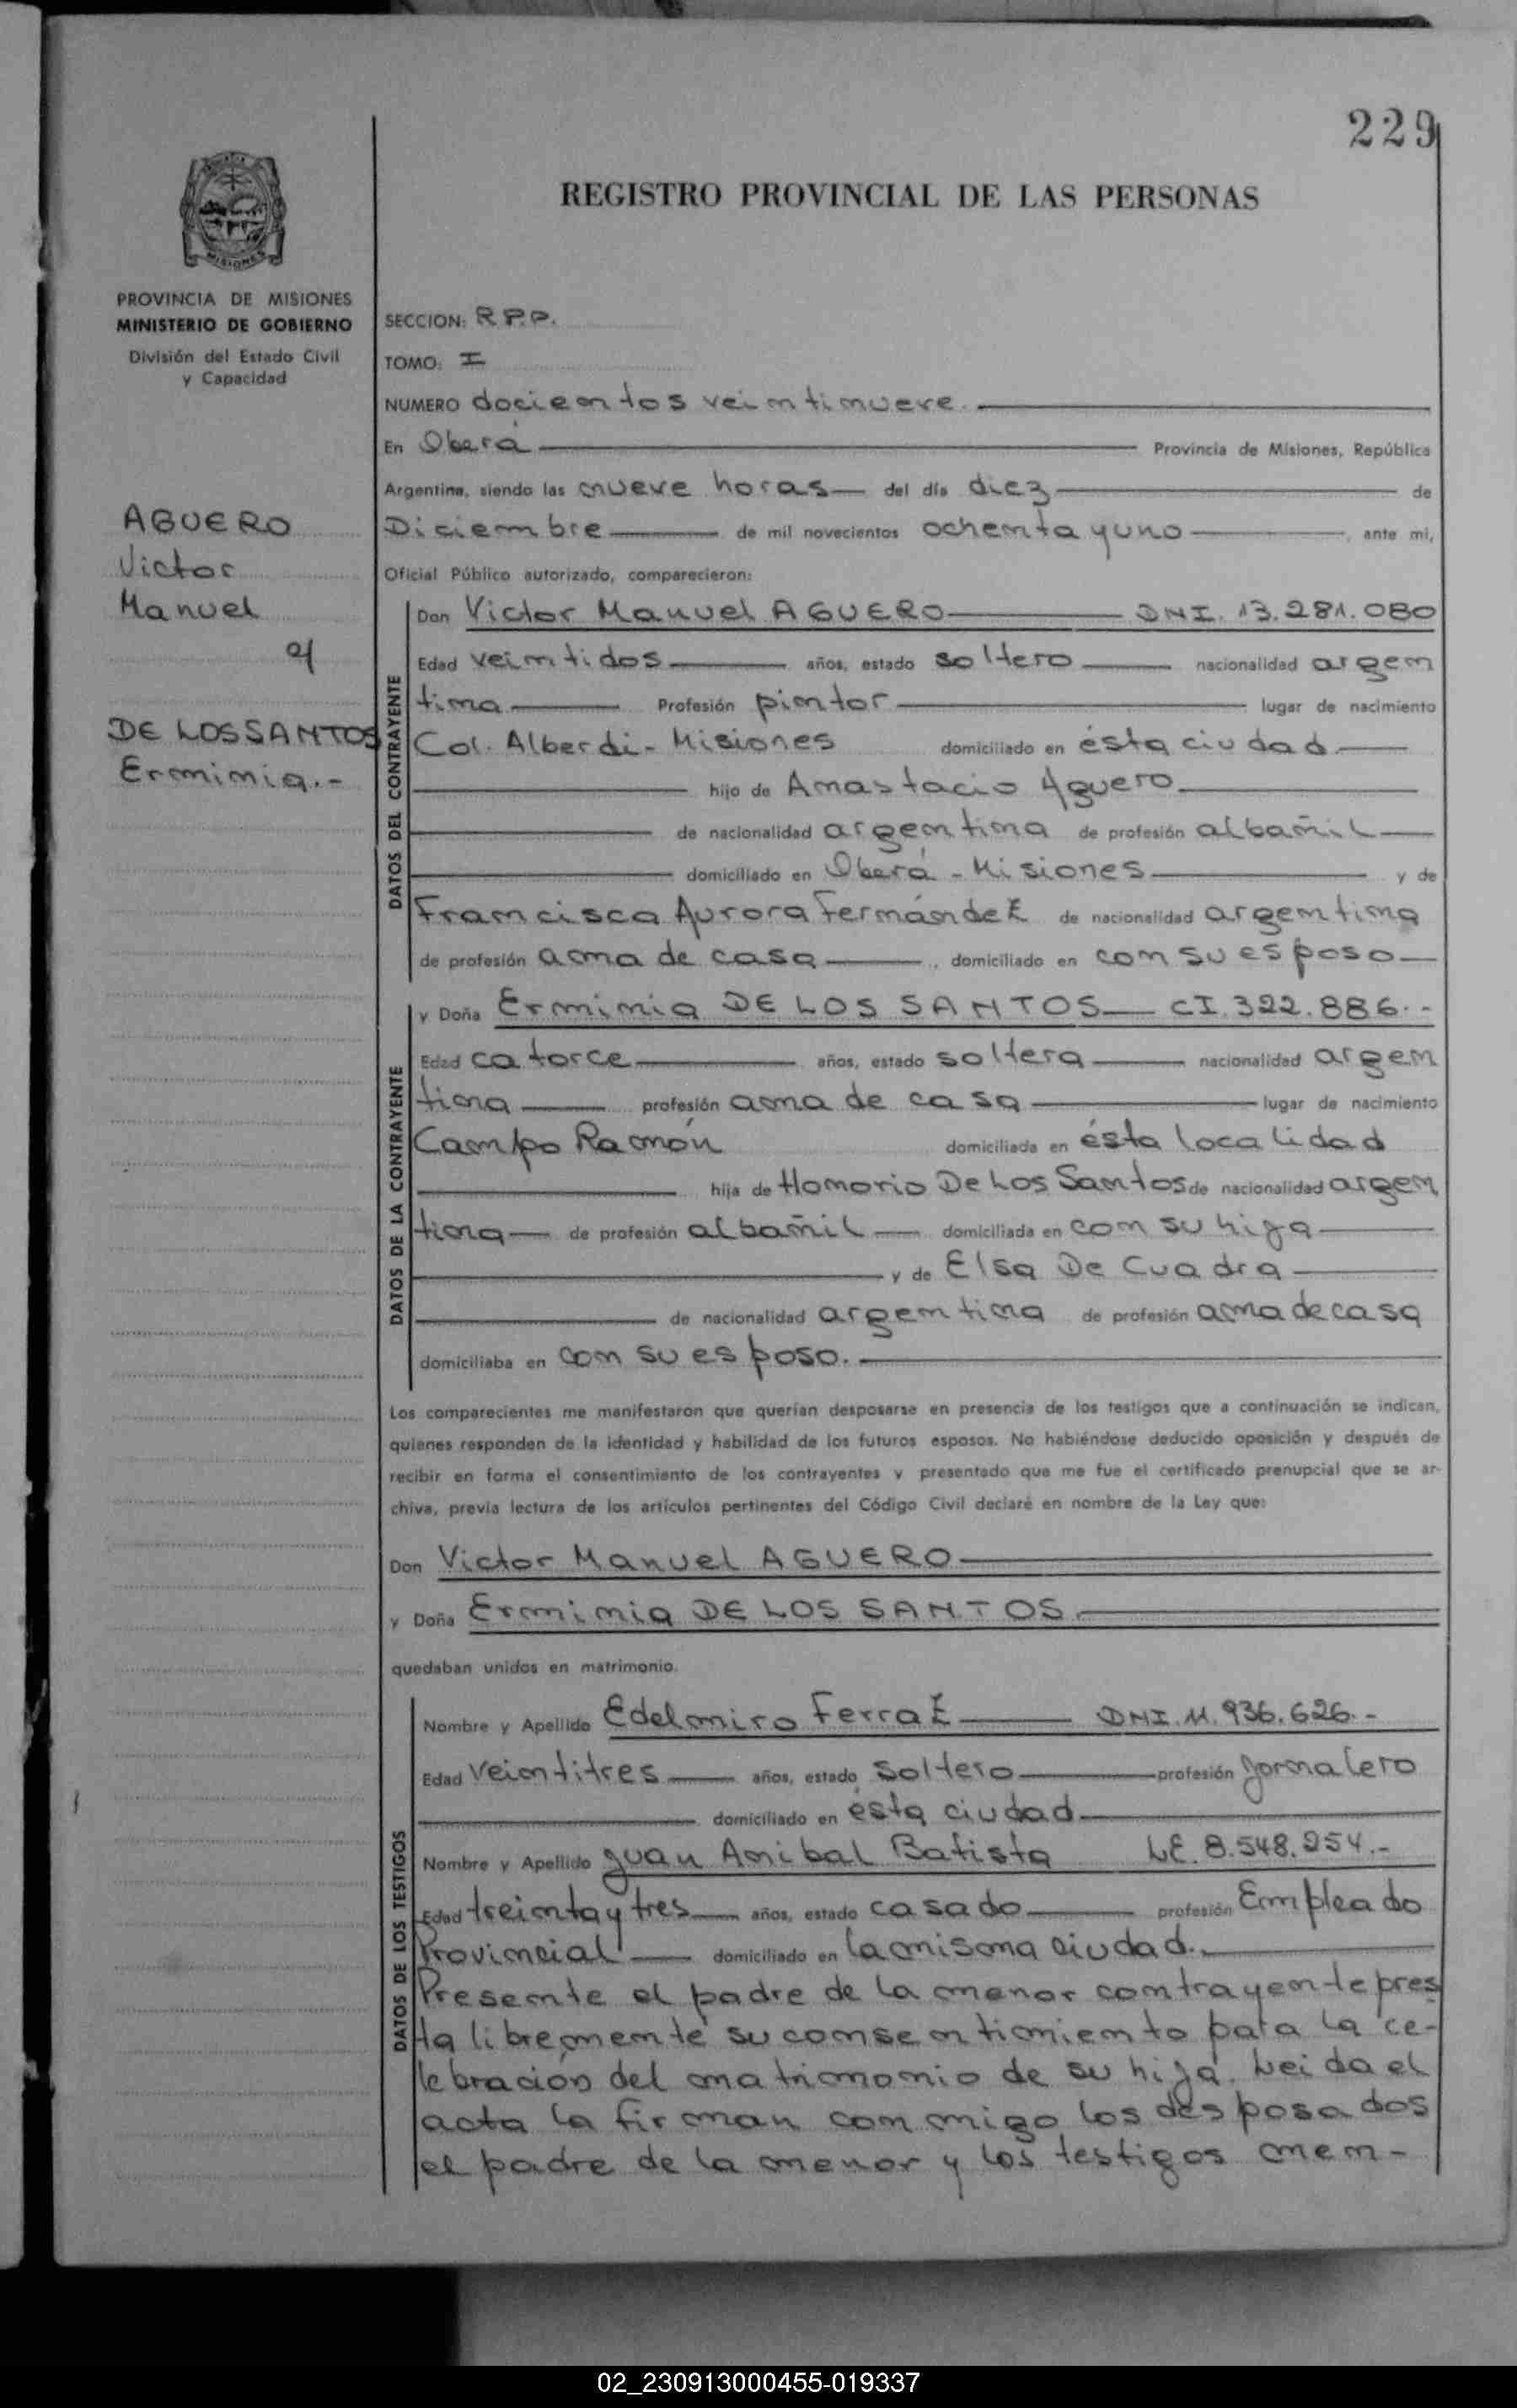 229
REGISTRO PROVINCIAL DE LAS PERSONAS
MISIONES
PROVINCIA DE MISIONES
MINISTERIO DE GOBIERNO
División del Estado Civil
y Capacidad
SECCION: R.P.P.
TOMO: I
NUMERO docientos veintinueve.
En Oberá Provincia de Misiones, República
Argentina, siendo las nueve horas del día diez de
Diciembre de mil novecientos ochenta y uno, ante mi,
Oficial Público autorizado, comparecieron:
AGUERO
Victor
Manuel
c/
DE LOS SANTOS
Erminia.-
DATOS DEL CONTRAYENTE
Don Victor Manuel AGUERO DNI. 13.281.080
Edad veintidos años, estado soltero nacionalidad argen
tina Profesión pintor lugar de nacimiento
Col. Alberdi - Misiones domiciliado en ésta ciudad
hijo de Anastacio Aguero
de nacionalidad argentina de profesión albañil
domiciliado en Oberá - Misiones y de
Francisca Aurora Fernández de nacionalidad argentina
de profesión ama de casa, domiciliado en con su esposo
DATOS DE LA CONTRAYENTE
y Doña Erminia DE LOS SANTOS CI. 322.886.-
Edad catorce años, estado soltera nacionalidad argen
tina profesión ama de casa lugar de nacimiento
Campo Ramón domiciliada en ésta localidad
hija de Honorio De Los Santos de nacionalidad argen
tina de profesión albañil domiciliada en con su hija
y de Elsa De Cuadra
de nacionalidad argentina de profesión ama de casa
domiciliaba en con su esposo.
Los comparecientes me manifestaron que querían desposarse en presencia de los testigos que a continuación se indican,
quienes responden de la identidad y habilidad de los futuros esposos. No habiéndose deducido oposición y después de
recibir en forma el consentimiento de los contrayentes y presentado que me fue el certificado prenupcial que se ar-
chiva, previa lectura de los artículos pertinentes del Código Civil declaré en nombre de la Ley que:
Don Victor Manuel AGUERO
y Doña Erminia DE LOS SANTOS.
quedaban unidos en matrimonio.
DATOS DE LOS TESTIGOS
Nombre y Apellido Edelmiro Ferraz DNI. 11.936.626.-
Edad Veintitres años, estado soltero profesión Jornalero
domiciliado en ésta ciudad
Nombre y Apellido Juan Anibal Batista LE. 8.548.254.-
Edad treinta y tres años, estado casado profesión Empleado
Provincial domiciliado en la misma ciudad.
Presente el padre de la menor contrayente pres
ta libremente su consentimiento para la ce-
lebración del matrimonio de su hija. Leida el
acta la firman conmigo los desposados
el padre de la menor y los testigos men-
02_230913000455-019337